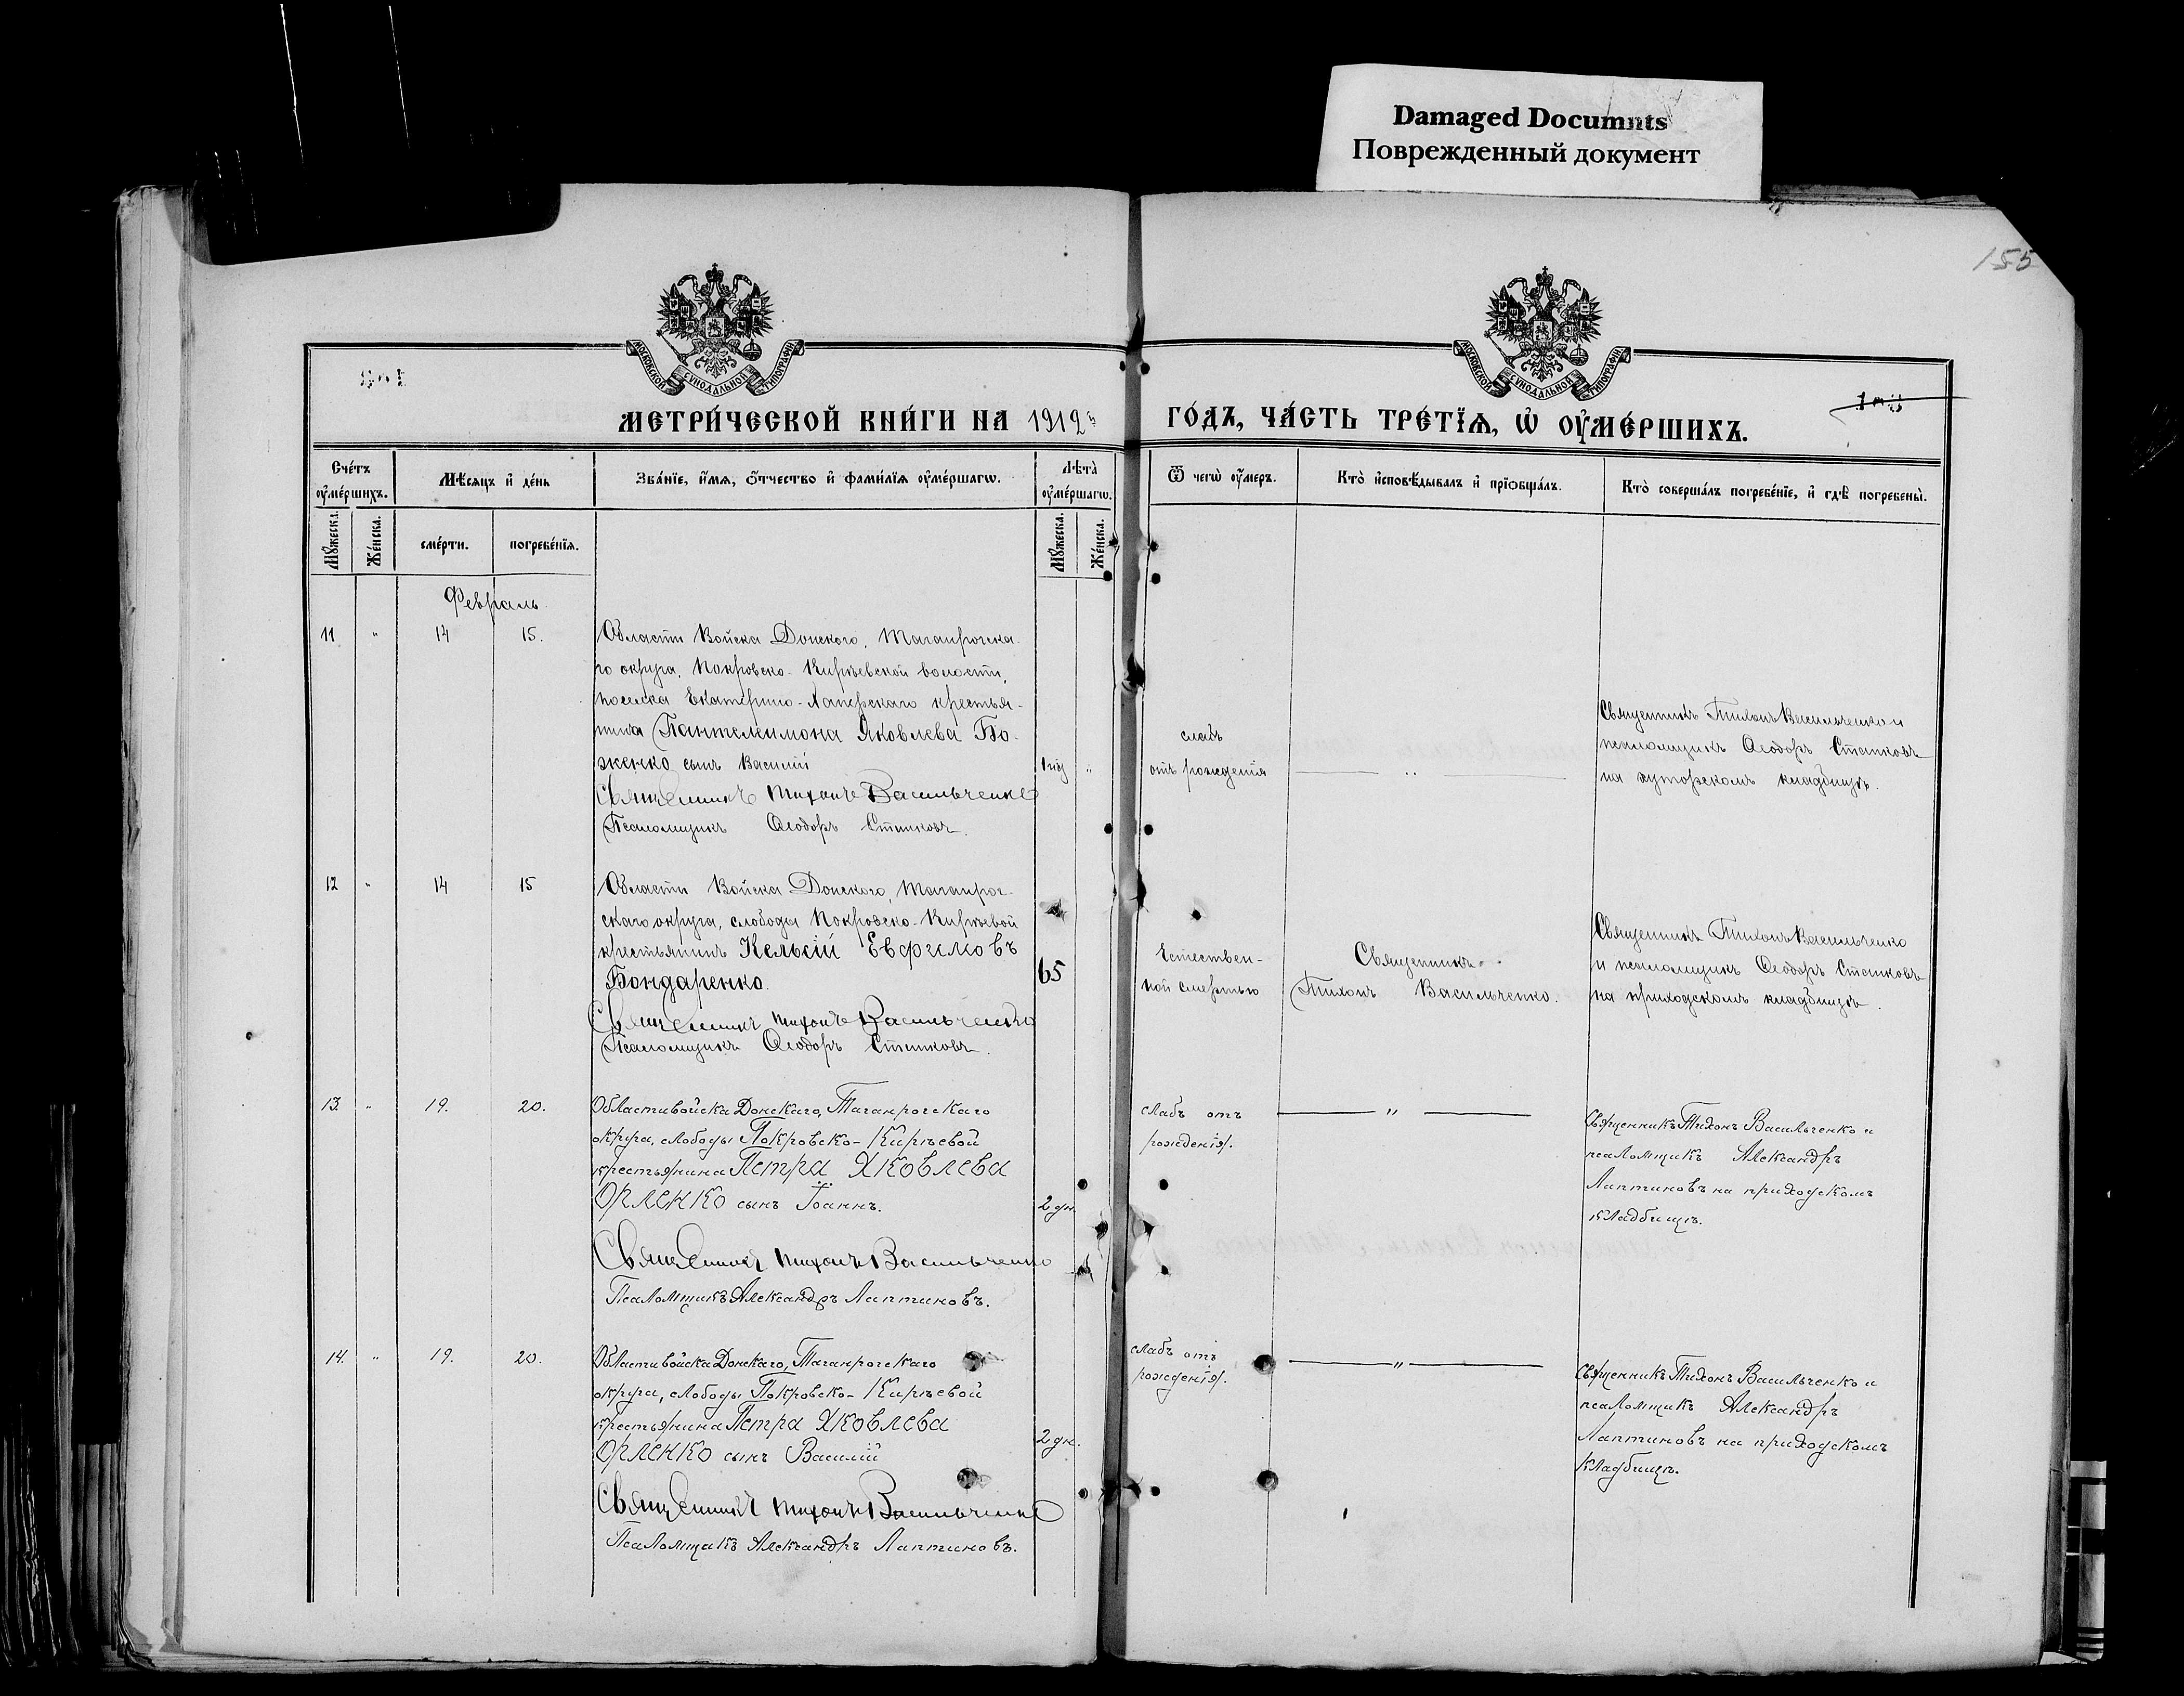 Damaged Documnts
Поврежденный документ
155
МОСКОВСКОЙ СУНОДАЛЬНОЙ ТИПОГРАФІИ
МОСКОВСКОЙ СУНОДАЛЬНОЙ ТИПОГРАФІИ
МЕТРИ́ЧЕСКОЙ КНИ́ГИ НА 1912й ГО́ДЪ, ЧА́СТЬ ТРЕ́ТЇѦ, Ѡ҆ ОУ҆МЕ́РШИХЪ.
Сче́тъ оу҆ме́ршихъ.
Мѣ́сѧцъ и҆ де́нь
Зва́нїе, и҆́мѧ, ѻ҆́тчество и҆ фами́лїѧ оу҆ме́ршагѡ.
Лѣ́та оу҆ме́ршагѡ.
Ѿ чегѡ̀ оу҆́меръ.
Кто̀ и҆сповѣ́дывалъ и҆ прїѡбща́лъ.
Кто̀ соверша́лъ погребе́нїе, и҆ гдѣ̀ погребены̀.
Мꙋ́жеска.
Же́нска.
сме́рти.
погребе́нїѧ.
Мꙋ́жеска.
Же́нска.
Февраль
11 " 14 15.
Области Войска Донского, Таганрогска-
го округа, Покровско-Кирѣевской волости,
поселка Екатерино-Хапрскаго крестья-
нина Пантелеимона Яковлева Бо-
женко сынъ Василій
1 год "
Священникъ Тихонъ Васильченко
Псаломщикъ Ѳеодоръ Статковъ.
слабъ
отъ рожденія
"
Священникъ Тихонъ Васильченко и
псаломщикъ Ѳеодоръ Статковъ
на хуторскомъ кладбищѣ.
12 " 14 15
Области Войска Донского, Таганрог-
скаго округа, слободы Покровско-Кирѣевой
крестьянинъ Кельсій Евфимовъ
Бондаренко.
65
Священникъ Тихонъ Васильченко
Псаломщикъ Ѳеодоръ Статковъ.
Естествен-
ной смертью
Священникъ
Тихонъ Васильченко.
Священникъ Тихонъ Васильченко
и псаломщикъ Ѳеодоръ Статковъ
на приходскомъ кладбищѣ.
13. " 19. 20.
Области войска Донскаго, Таганрогскаго
округа, слободы Покровско-Кирѣевой
крестьянина Петра Яковлева
Орленко сынъ Іоаннъ.
2 дн.
Священникъ Тихонъ Васильченко
Псаломщикъ Александръ Лаптиновъ.
слабъ отъ
рожденія.
"
Священникъ Тихонъ Васильченко и
псаломщикъ Александръ
Лаптиновъ на приходскомъ
кладбищѣ.
14. " 19. 20.
Области войска Донскаго, Таганрогскаго
округа, слободы Покровско-Кирѣевой
крестьянина Петра Яковлева
Орленко сынъ Василій
2 дн.
Священникъ Тихонъ Васильченко
Псаломщикъ Александръ Лаптиновъ.
слабъ отъ
рожденія.
"
Священникъ Тихонъ Васильченко и
псаломщикъ Александръ
Лаптиновъ на приходскомъ
кладбищѣ.